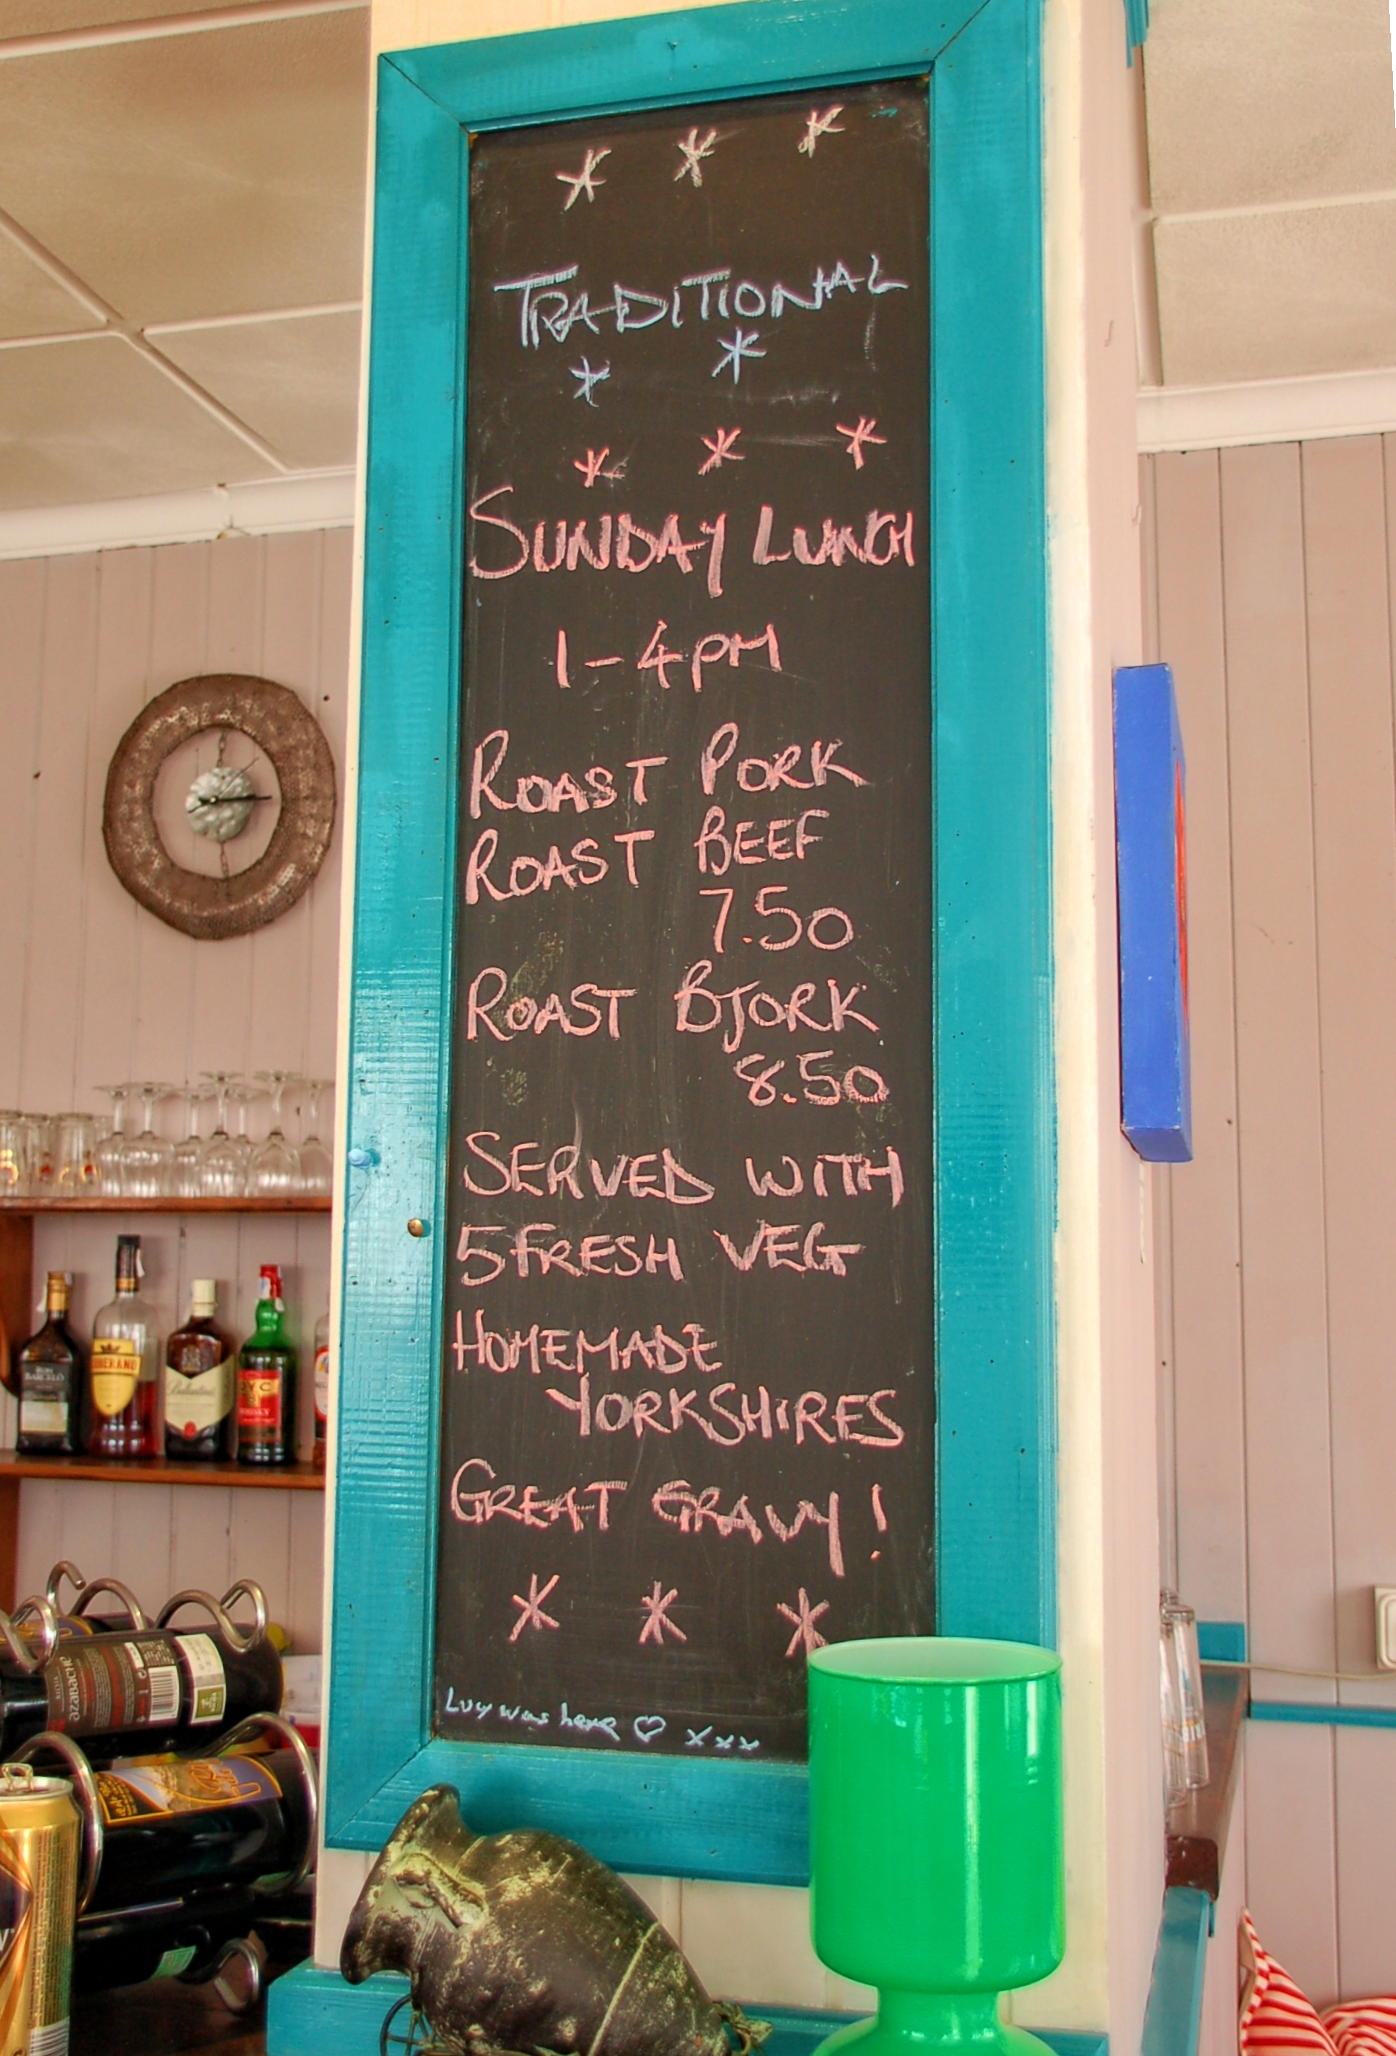 TRADITIONAL
SUNDAY LUNCH
1-4PM
ROAST PORK
ROAST BEEF
7.50
ROAST BJORK
8.50
SERVED WITH
5 FRESH VEG
HOMEMADE
YORKSHIRES
GREAT GRAVY!
Lucy was here ♡ xxx
RON
BARCELO
SOBERANO
Ballantine's
azabache